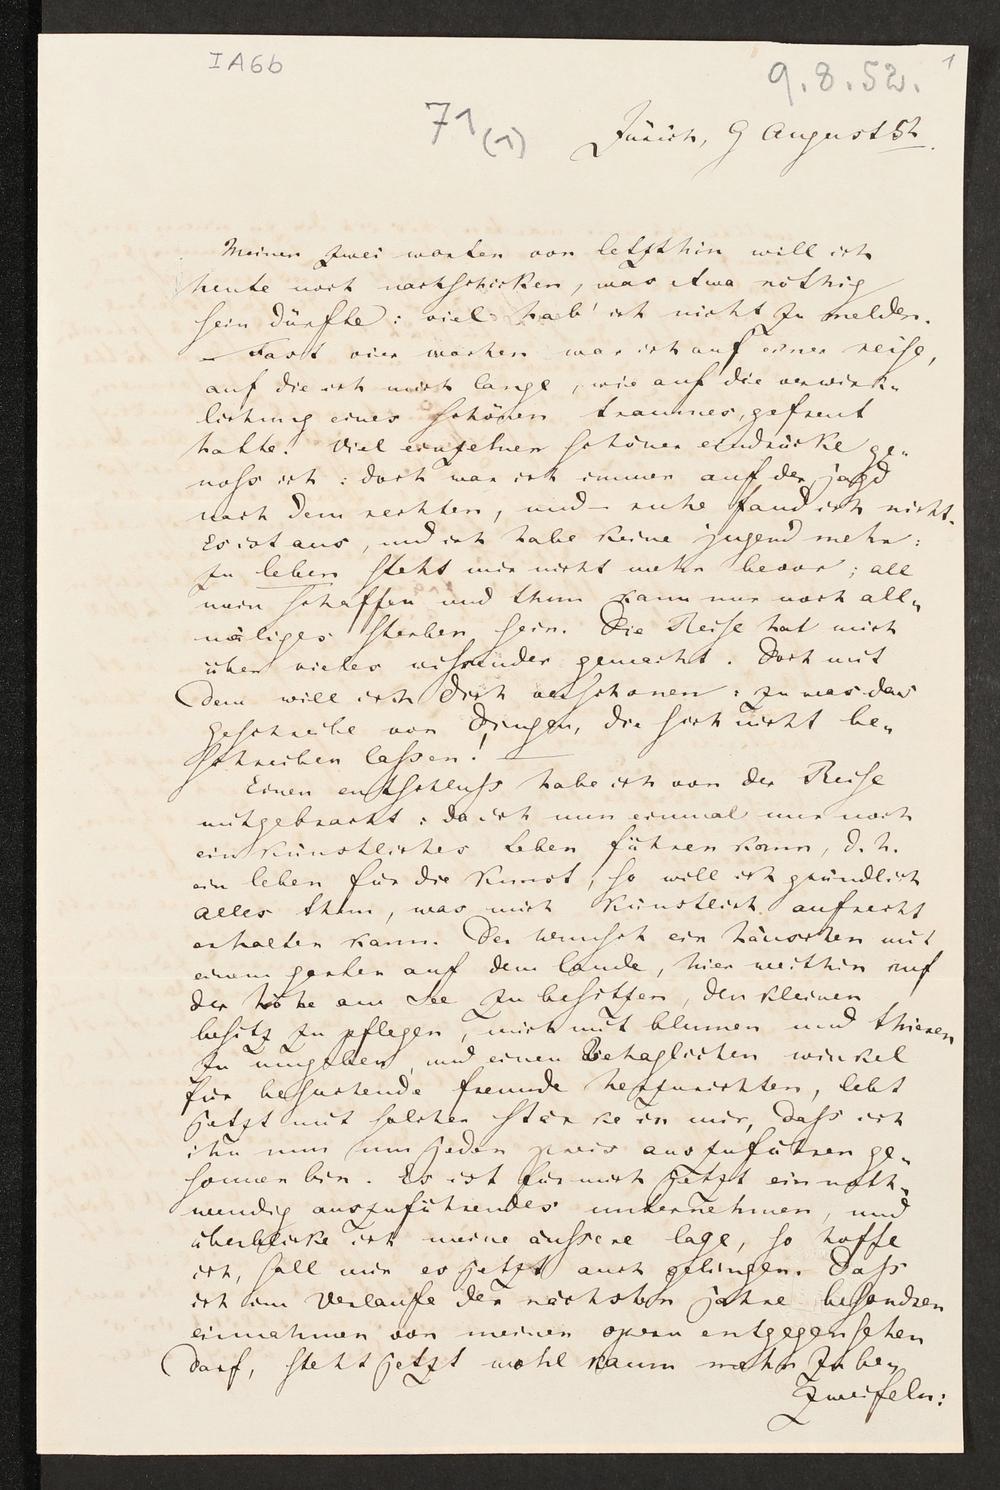 IA6b
9.8.52.
1
71 (1)
Zürich, 9 August 52.
Meinen zwei worten von letzthin will ich
heute noch nachschicken, was etwa nöthig
sein dürfte: viel hab' ich nicht zu melden.
– Fast vier wochen war ich auf einer reise,
auf die ich mich lange, wie auf die verwirk„
lichung eines schönen traumes, gefreut
hatte. Viel einzelner schöner eindrücke ge„
noss ich: doch war ich immer auf der jagd
nach dem rechten, und – ruhe fand ich nicht.
Es ist aus, und ich habe keine jugend mehr:
zu leben steht mir nicht mehr bevor; all
mein schaffen und thun kann nur noch all„
mäliges sterben sein. Die Reise hat mich
über vieles wissender gemacht. Doch mit
dem will ich dich verschonen: zu was das
geschreibe von Dingen, die sich nicht be„
schreiben lassen! —
Einen entschluss habe ich von der Reise
mitgebracht: da ich nun einmal nur noch
ein künstliches Leben führen kann, d. h.
ein leben für die Kunst, so will ich gründlich
alles thun, was mich künstlich aufrecht
erhalten kann. Der wunsch ein häuschen mit
einem garten auf dem lande, hier weithin auf
der höhe am See zu besitzen, den kleinen
besitz zu pflegen, mich mit blumen und thieren
zu umgeben, und einen behaglichen winkel
für besuchende freunde herzurichten, lebt
jetzt mit solcher stärke in mir, dass ich
ihn nun um jeden preis auszuführen ge„
sonnen bin. Es ist für mich jetzt ein noth„
wendig auszuführendes unternehmen, und
überblicke ich meine äussere lage, so hoffe
ich, soll mir es jetzt auch gelingen. Dass
ich im Verlaufe der nächsten jahre besondren
einnahmen von meinen opern entgegensehen
darf, steht jetzt wohl kaum mehr zu be„
zweifeln: